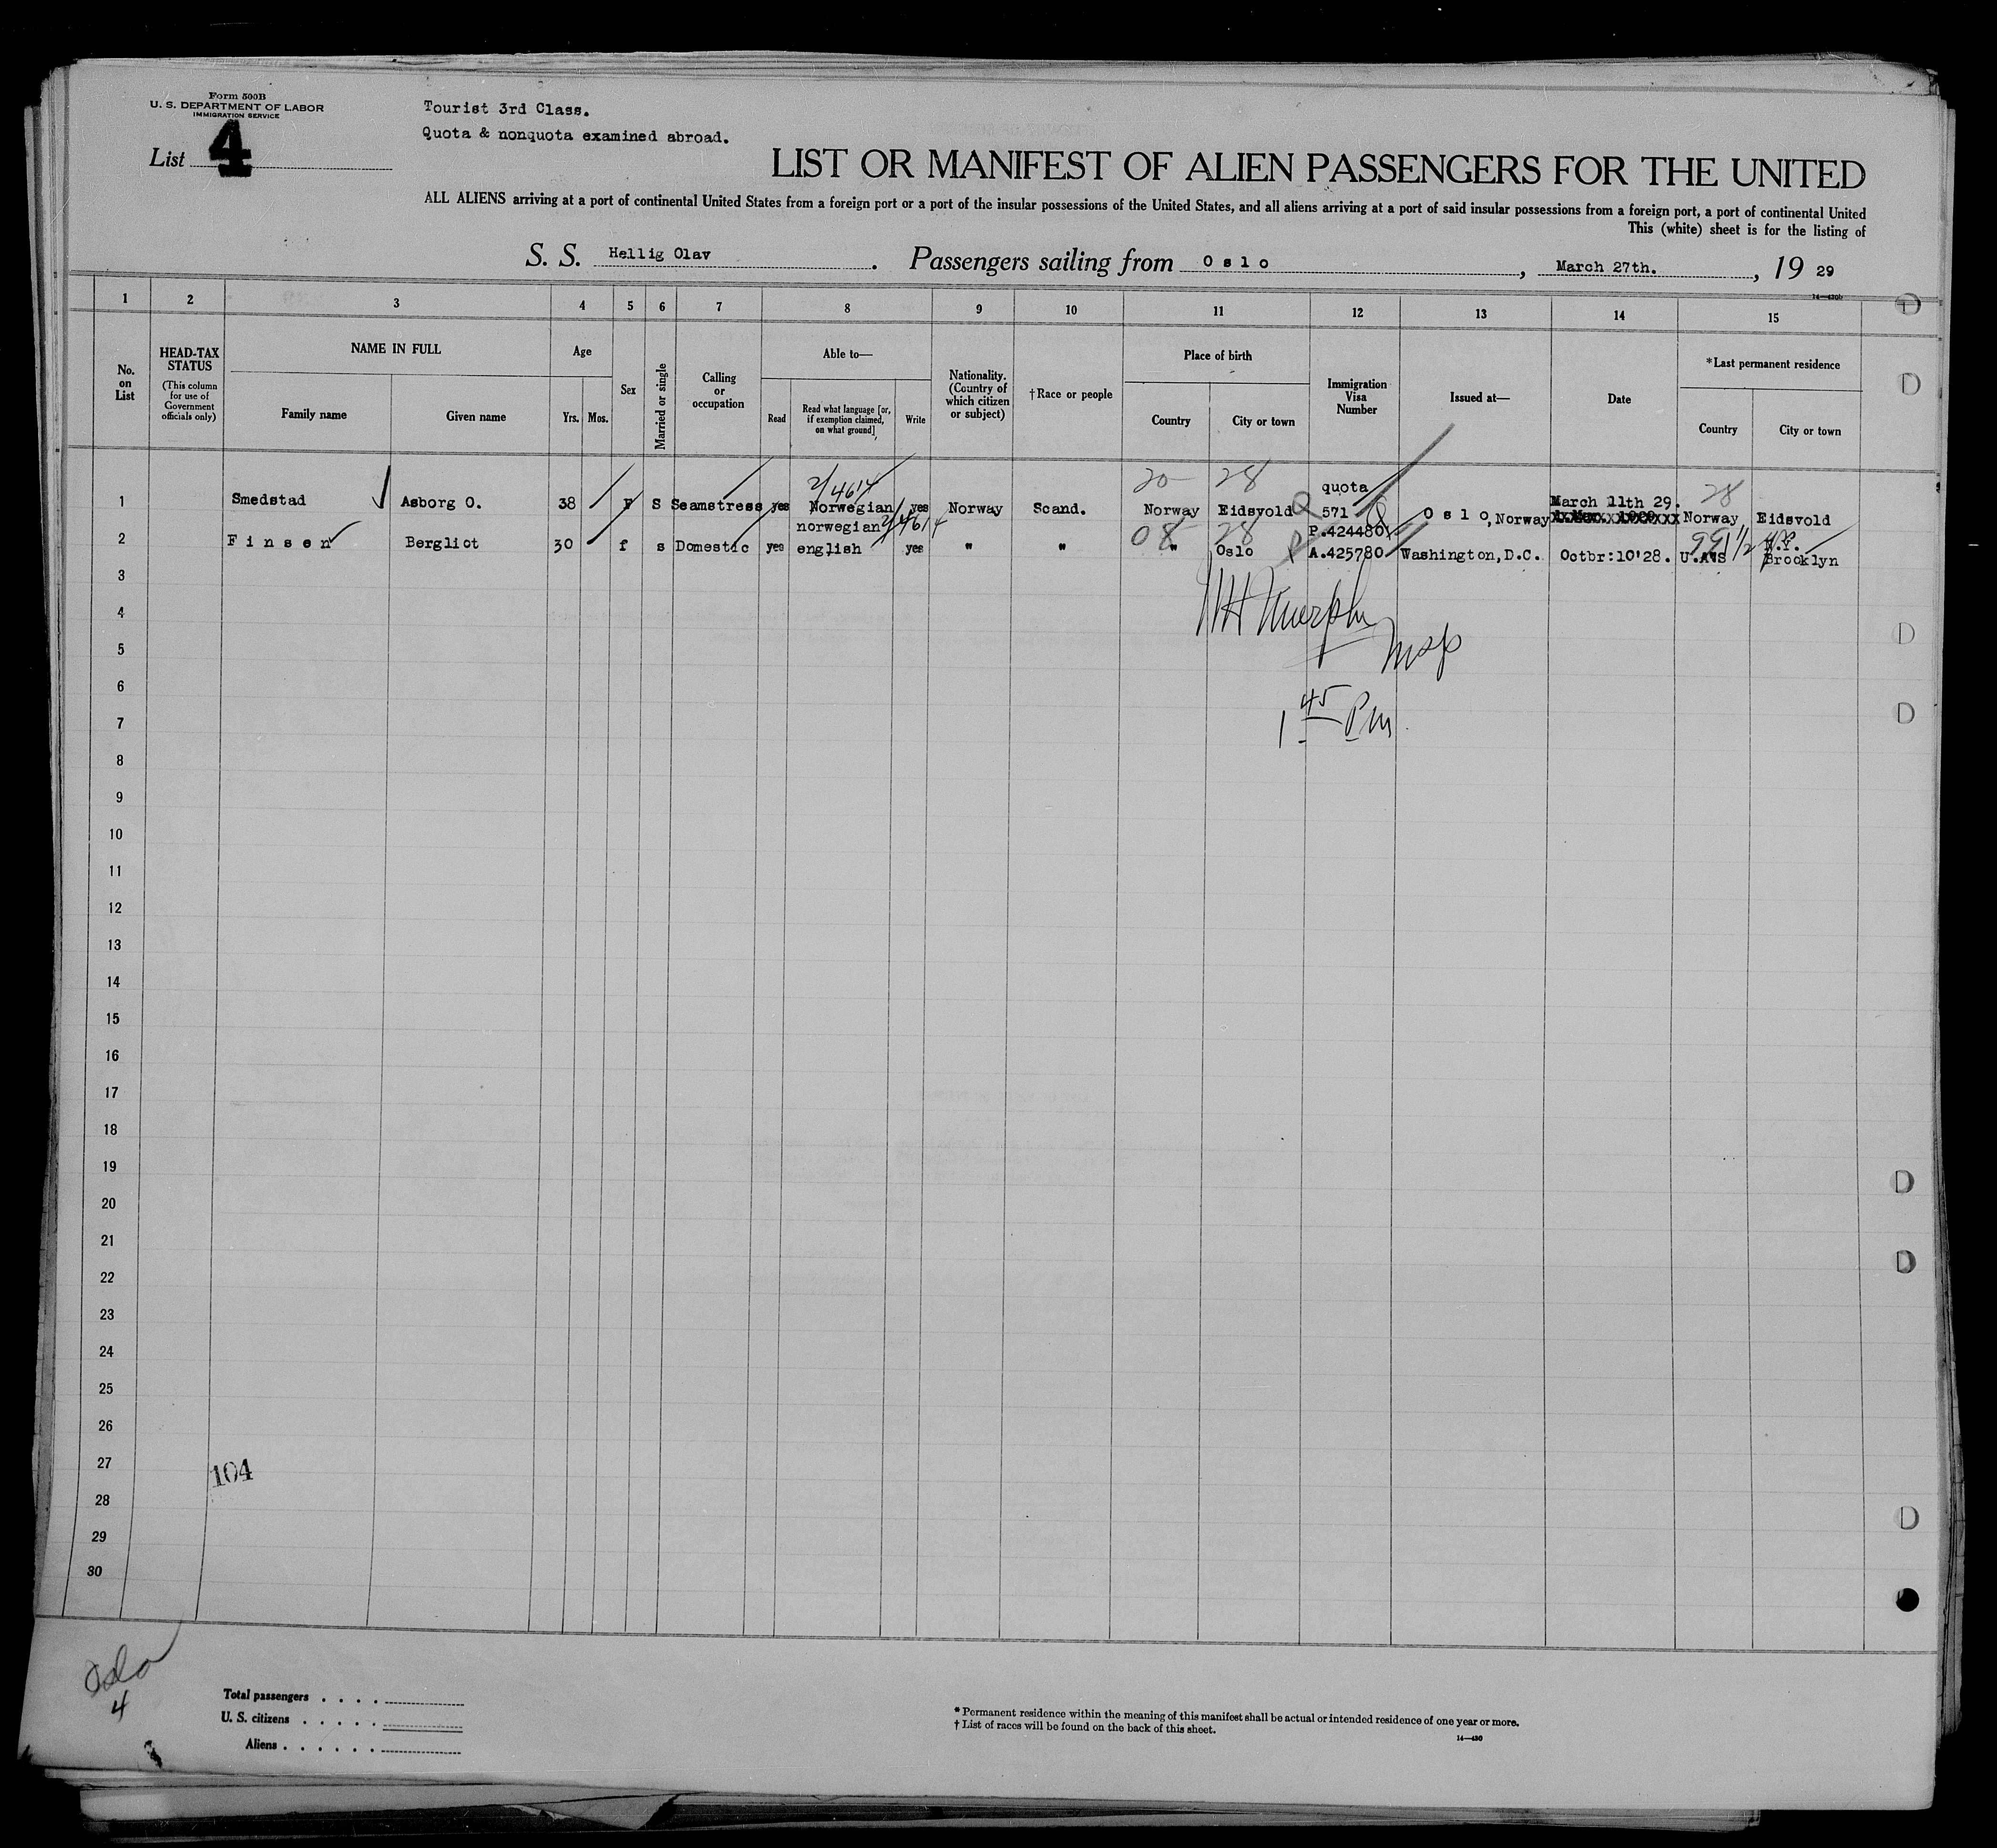 Form 500B
U. S. DEPARTMENT OF LABOR
IMMIGRATION SERVICE
List 4
Tourist 3rd Class.
Quota & nonquota examined abroad.
LIST OR MANIFEST OF ALIEN PASSENGERS FOR THE UNITED
ALL ALIENS arriving at a port of continental United States from a foreign port or a port of the insular possessions of the United States, and all aliens arriving at a port of said insular possessions from a foreign port, a port of continental United
This (white) sheet is for the listing of
S. S. Hellig Olav. Passengers sailing from Oslo, March 27th., 19 29
14—430b
1 2 3 4 5 6 7 8 9 10 11 12 13 14 15
No. on List
HEAD-TAX STATUS (This column for use of Government officials only)
NAME IN FULL
Family name
Given name
Age
Yrs. Mos.
Sex
Married or single
Calling or occupation
Able to—
Read
Read what language [or, if exemption claimed, on what ground]
Write
Nationality. (Country of which citizen or subject)
†Race or people
Place of birth
Country
City or town
Immigration Visa Number
Issued at—
Date
*Last permanent residence
Country
City or town
2/4614 20 28 quota 28
1 Smedstad Asborg O. 38 F S Seamstress yes Norwegian yes Norway Scand. Norway Eidsvold Q 571 Oslo, Norway March 11th 29. Norway Eidsvold
norwegian 2/4614 08 28 P.424480 99 1/2 N.Y.
2 Finsen Bergliot 30 f s Domestic yes english yes " " " Oslo A.425780 Washington, D.C. Octbr:10'28. U.A?S Brooklyn
3
4 WH Murphy
5 Insp
6
7 1 45 PM
8
9
10
11
12
13
14
15
16
17
18
19
20
21
22
23
24
25
26
27
104
28
29
30
Oslo
4
Total passengers
U. S. citizens
Aliens
* Permanent residence within the meaning of this manifest shall be actual or intended residence of one year or more.
† List of races will be found on the back of this sheet.
14—430